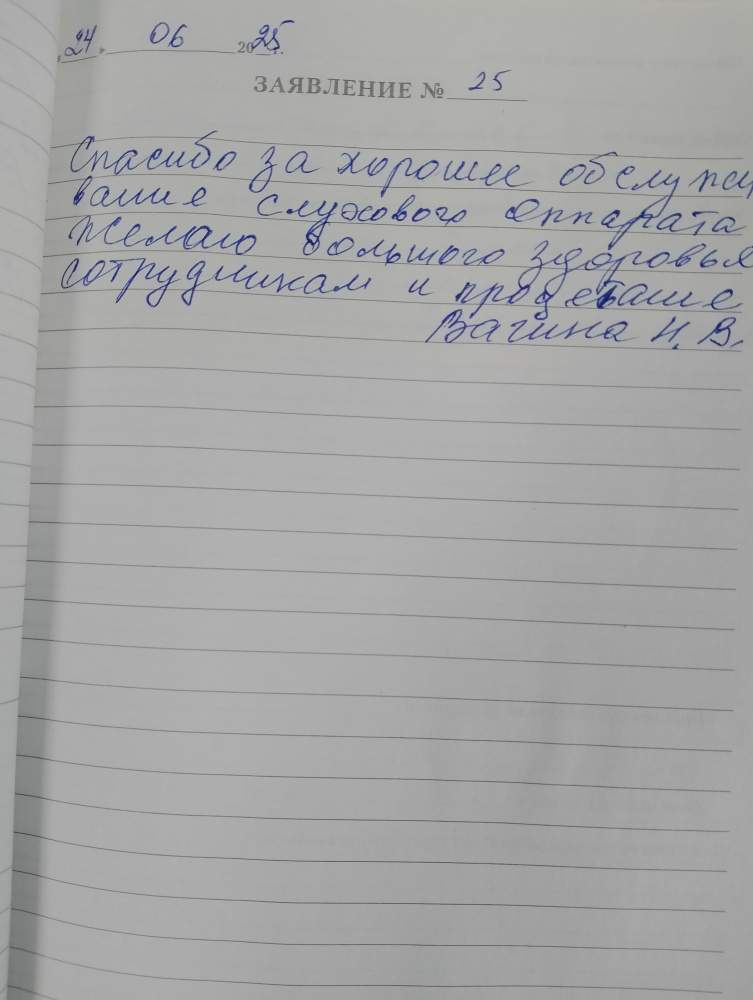 «24» 06 2025.
ЗАЯВЛЕНИЕ № 25
Спасибо за хорошее обслужи
вание слухового аппарата
Желаю большого здоровья
сотрудникам и процветание
Вагина Н. В.